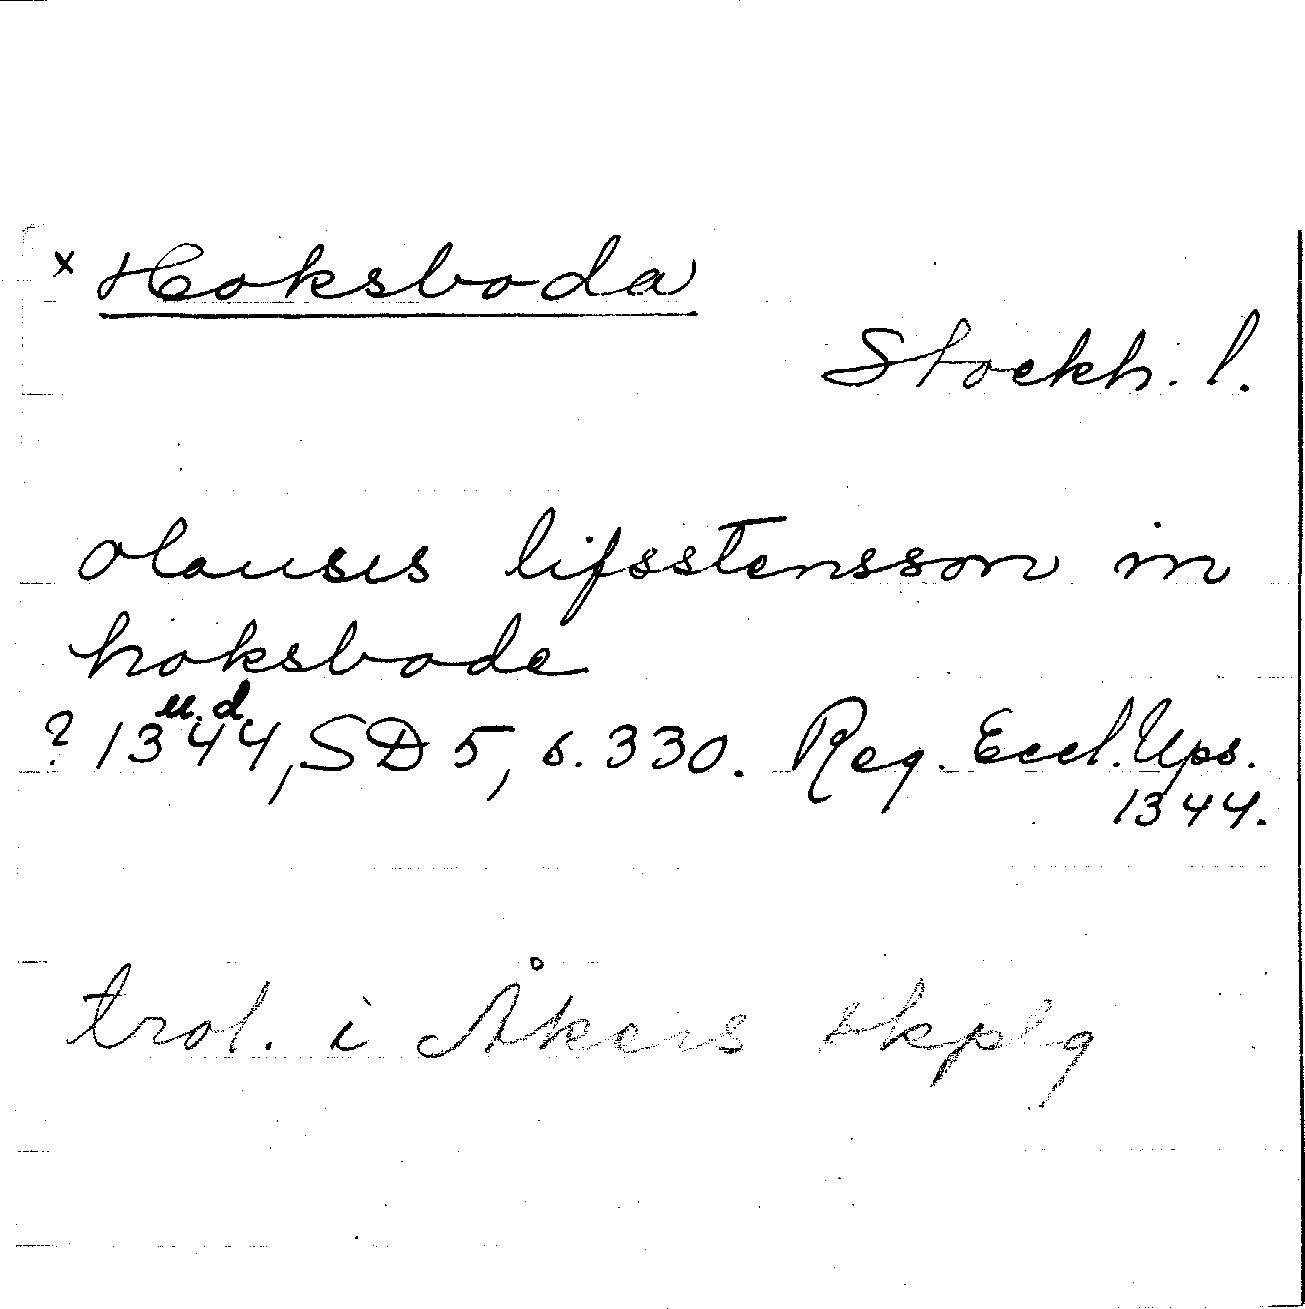 x Hoksboda
Stockh. l.
olauus lifsstensson in
hoksbode
u. d.
? 1344, SD 5, s. 330. Reg. Eccl. Ups.
1344.
trol. i Åkers skplg